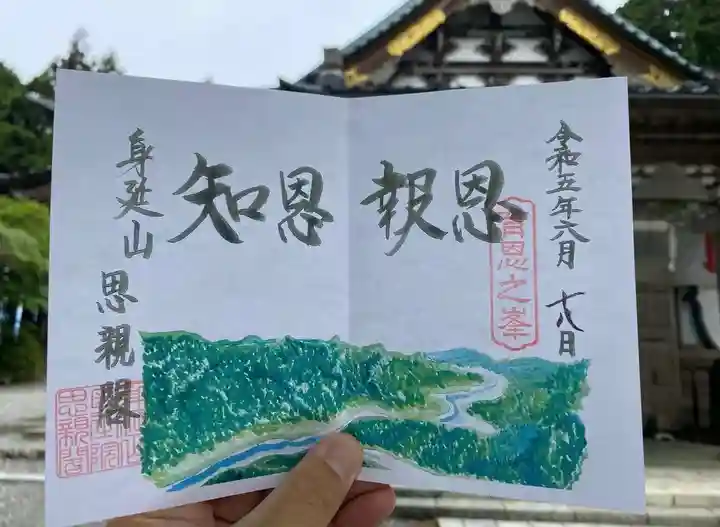 令和五年六月十八日
育恩之峯
知恩 報恩
身延山
思親閣
思親閣